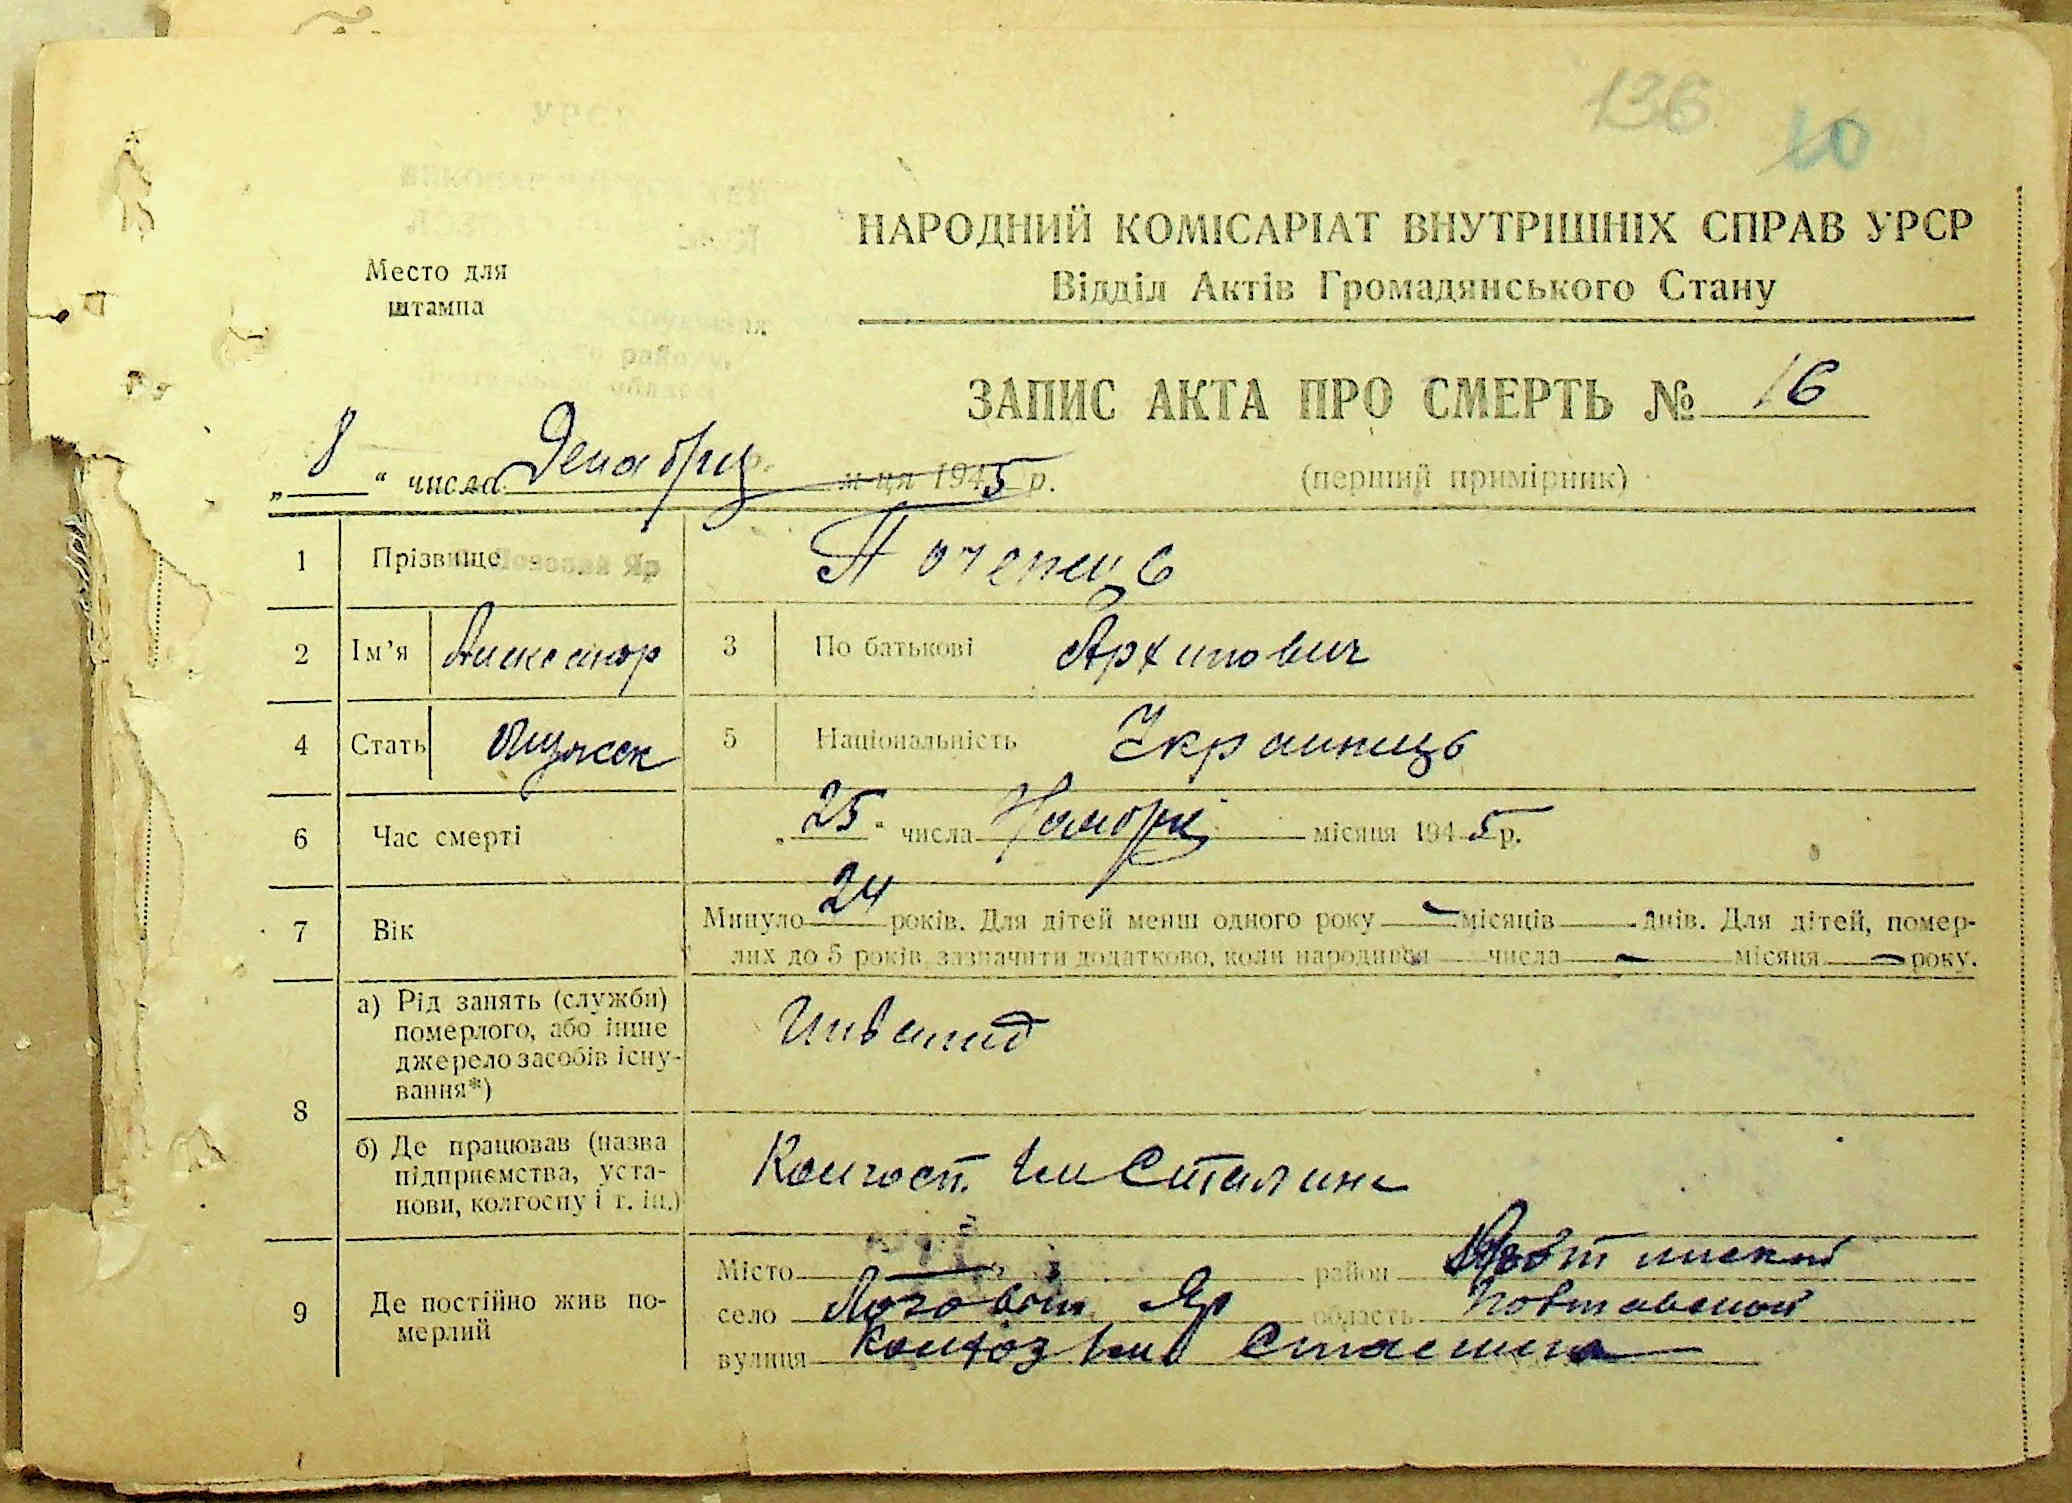 136
10
НАРОДНИЙ КОМІСАРІАТ ВНУТРІШНІХ СПРАВ УРСР
Відділ Актів Громадянського Стану
Место для
штампа
ЗАПИС АКТА ПРО СМЕРТЬ № 16
„ 8 “ числа Декабря м-ця 1945 р.
(перший примірник)
1 Прізвище Почепець
2 Ім’я Александр 3 По батькові Архипович
4 Стать Мужск 5 Національність Украинець
6 Час смерті „ 25 “ числа Ноября місяця 1945 р.
7 Вік Минуло 24 років. Для дітей менш одного року — місяців днів. Для дітей, помер-
лих до 5 років, зазначити додатково, коли народився числа — місяця — року.
8 а) Рід занять (служби)
померлого, або інше
джерело засобів існу-
вання*)
Инвалид
б) Де працював (назва
підприємства, уста-
нови, колгоспу і т. ін.)
Колгосп. Им Сталина
9 Де постійно жив по-
мерлий
Місто — район
село Яр область Полтавской
вулиця Колхоз Им Сталина